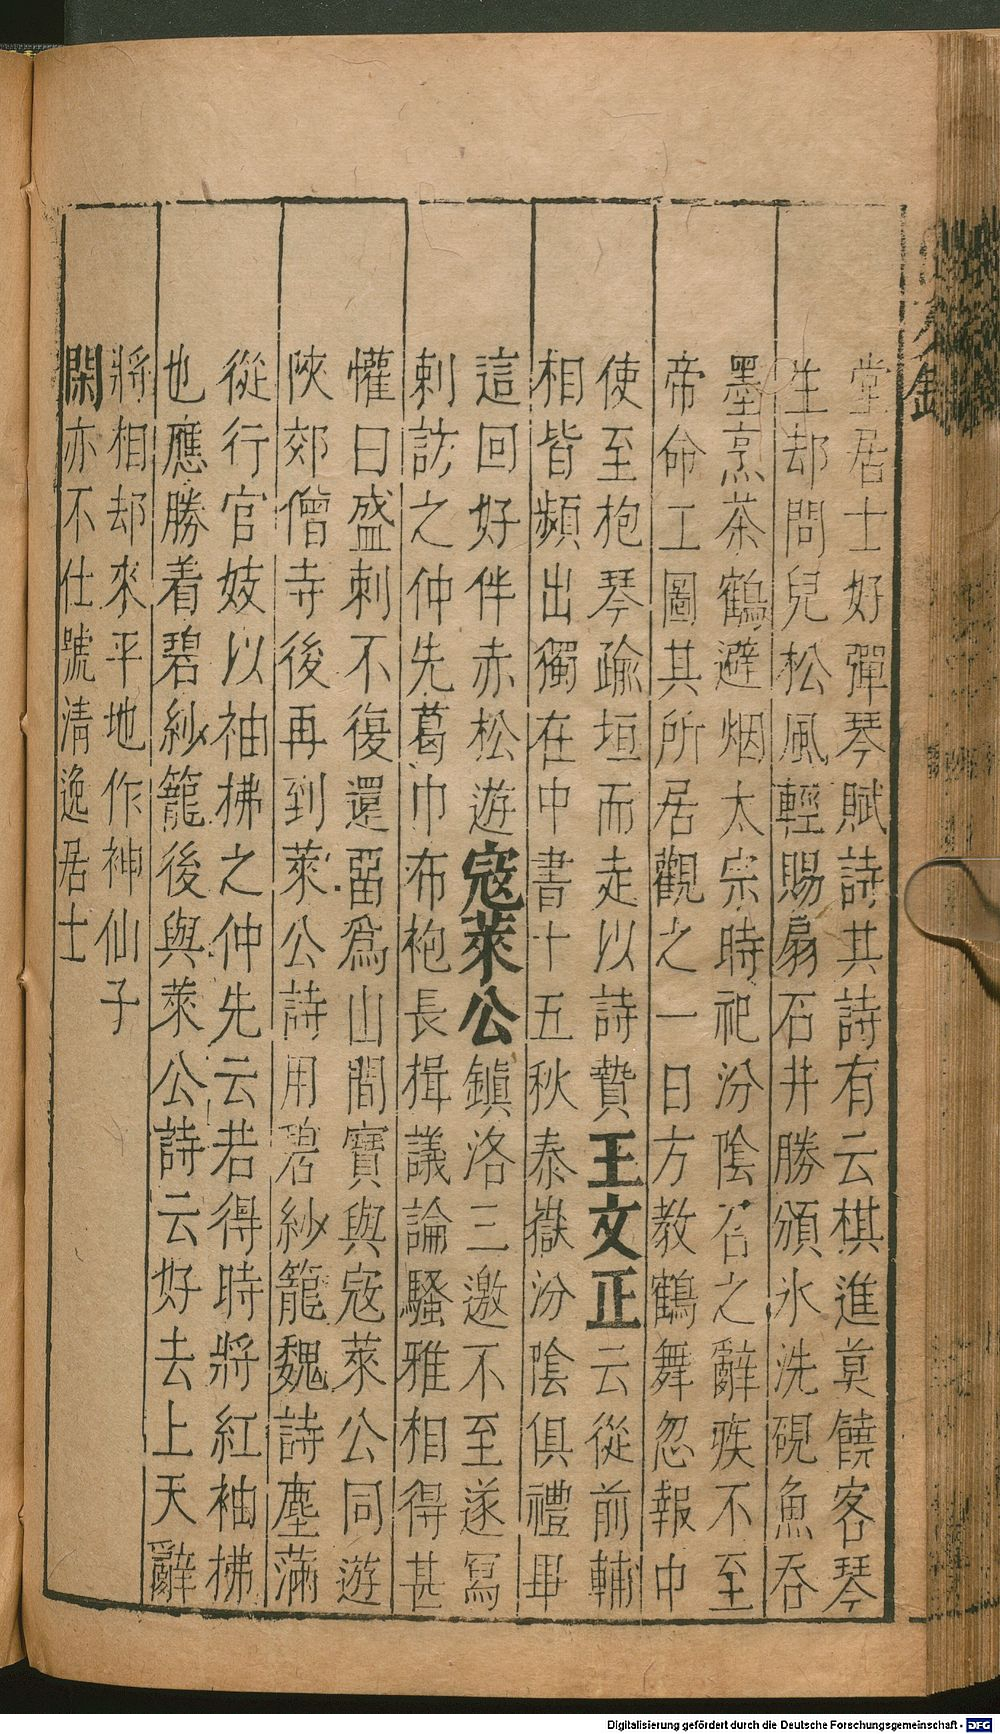 堂居士好彈琴賦詩其詩有云棋進莫饒客琴
生却問兒松風輕賜扇石井勝頒氷洗硯魚吞
墨烹茶鶴避烟太宗時祀汾陰召之辭疾不至
帝命工圖其所居觀之一日方教鶴舞忽報中
使至枹琴踰垣而走以詩贄王文正云從前輔
相皆頻出獨在中書十五秋泰嶽汾陰俱禮毕
這回好伴赤松遊寇萊公鎮洛三邀不至遂寫
刺訪之仲先葛巾布袍長揖議論騷雅相得甚
懽曰盛刺不復還畱爲山間寳與寇萊公同遊
陜郊僧寺後再到萊公詩用碧紗籠魏詩塵滿
從行官妓以袖拂之仲先云若得時將紅袖拂
也應勝着碧紗籠後與萊公詩云好去上天辭
將相却來平地作神仙子
閑亦不仕號清逸居士
Digitalisierung gefördert durch die Deutsche Forschungsgemeinschaft - DFG